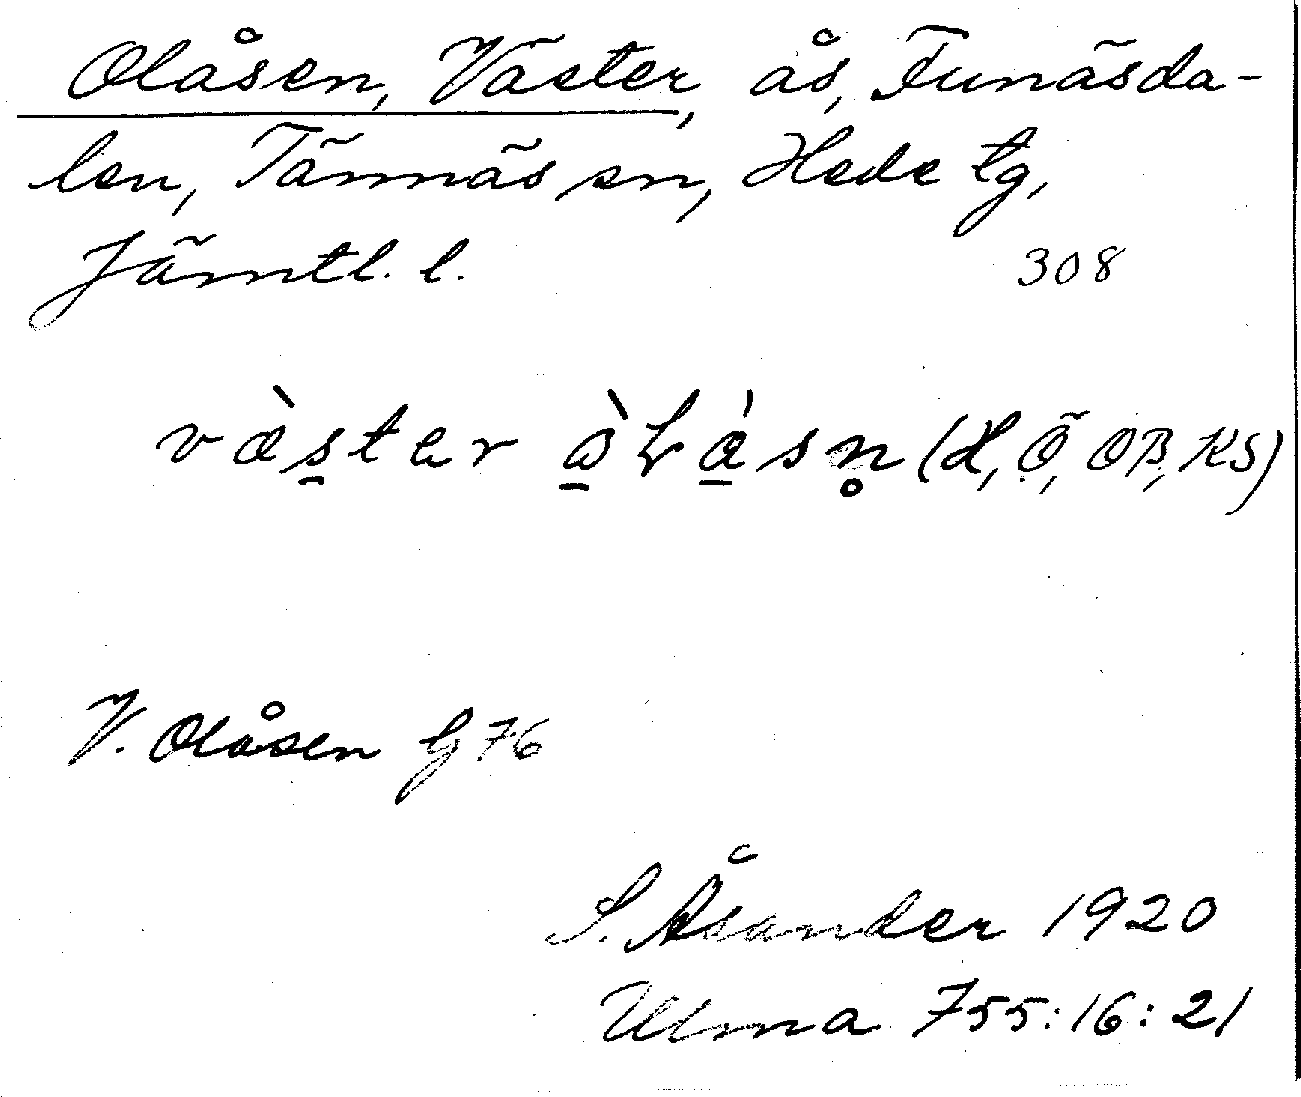 Olåsen, Väster, ås, Funäsda-
len, Tännäs sn, Hede tg,
Jämtl. l. 308
(H, Ö, OB, KS)
V. Olåsen G 76
S. Åsander 1920
Ulma 755:16:21